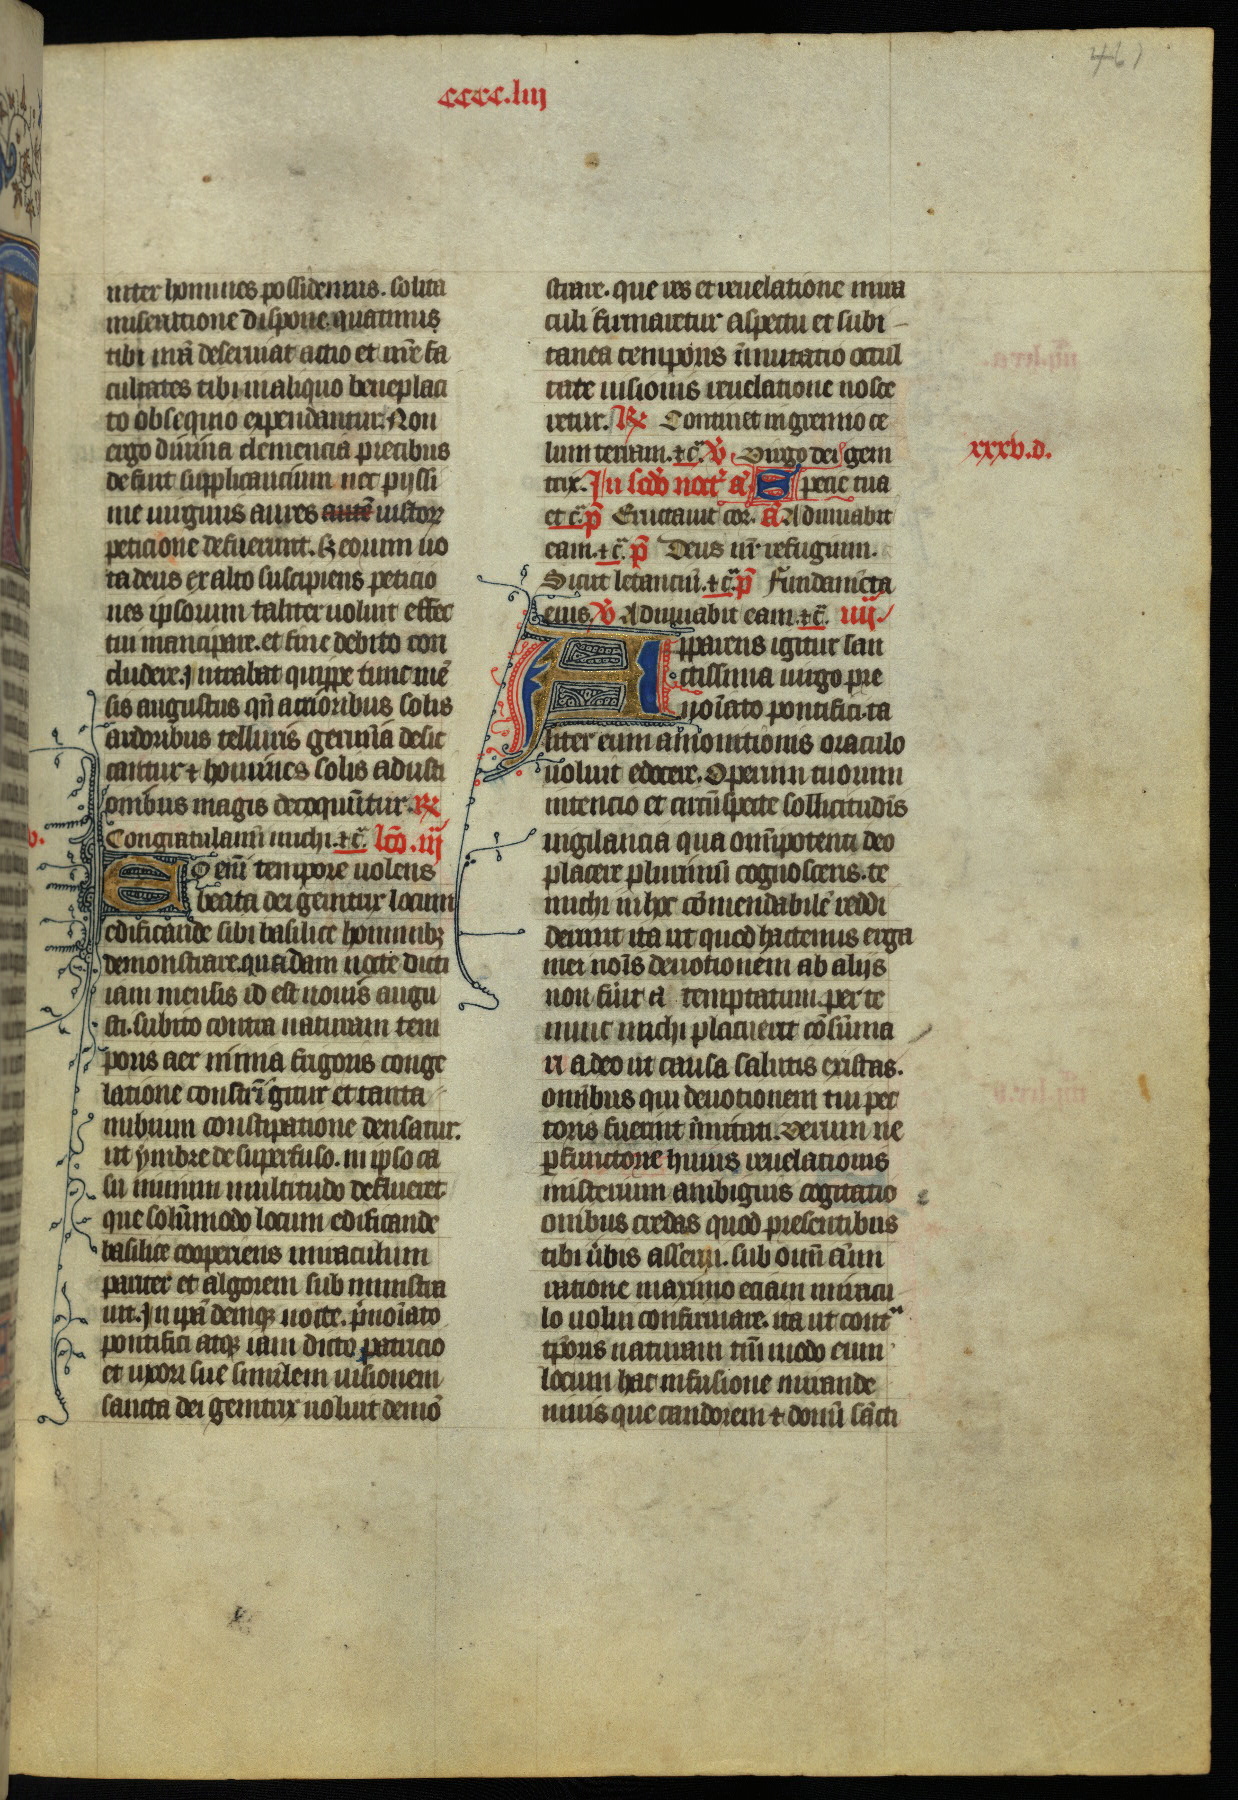 461
cccc.liij
inter homines possidemus. solita
miseratione dispone. quatinus
tibi nr̄a deseruiat actio et nr̄e fa
cultates tibi in aliquo beneplaci
to obsequio expendantur. Non
ergo diuina clemencia precibus
defuit supplicancium nec pijssi
me uirginis aures autē iustorꝝ
peticione defuerunt. sꝫ eorum uo
ta deus ex alto suscipiens peticio
nes ipsorum taliter uoluit effec
tui mancipare. et fine debito con
cludere. Intrabat quippe tunc mē
sis augustus qn̄ acrioribus solis
ardoribus telluris germīa desic
cantur ⁊ homines solis adusti
onibus magis decoquūtur. R̸
Congratulamī michi. ⁊ c̄. lc̄o. iij
Eodem eni tempore uolens
beata dei genitrix locum
edificande sibi basilice hominibꝫ
demonstrare. quadam nocte dicti
iam mensis id est nonis augu
sti. subito contra naturam tem
poris aer nimia frigoris conge
latione constrīgitur et tanta
nubium constipatione densatur.
ut ymbre desuperfuso. in ipso ca
su niuium multitudo deflueret
que solūmodo locum edificande
basilice cooperiens miraculum
pariter et algorem subministra
uit. In ip̄a deniqꝫ nocte. p̄noīato
pontifici atqꝫ iam dicto patricio
et uxori sue similem uisionem
sancta dei genitrix uoluit demō
strare. que res et reuelatione mira
culi firmaretur aspectu et subi
tanea temporis īmutatio occul
tate uisionis reuelatione nosce
retur. R̸ Continet in gremio ce
lum terram. ⁊ c̄. V̸ Virgo dei gem
trix. In scd̄o noct̄ a͞ Specie tua
et c̄. p̄ Eructauit cor. a͞ Adiuuabit
eam. ⁊ c̄. p̄ Deus nr̄ refugium.
Sicut letanciū. ⁊ c̄. p̄ Fundamēta
eius. V̸ Adiuuabit eam. ⁊ c̄. iiij.
xxxv.d.
Apparens igitur san
ctissima uirgo pre
noīato pontifici. ta
liter eum amonitionis oraculo
uoluit edocere. Operum tuorum
intencio et circūspecte sollicitudīs
uigilancia qua omīpotenti deo
placere plurimū cognosceris. te
michi in hoc cōmendabilē reddi
derunt ita ut quod hactenus erga
mei noīs deuotionem ab alijs
non fuit a temptatum. per te
nunc michi placuerit cōsūma
ri adeo ut causa salutis existas.
omībus qui deuotionem tui pec
toris fuerint īmitati. Verum ne
ꝑfunctorie huius reuelationis
misterium ambiguis cogitatio
onibus credas quod presentibus
tibi ūbis asserui. sub omī ām
ratione maximo eciam miracu
lo uolui confirmare. ita ut cont͛
tp̄oris naturam tm̄modo eum
locum hac infusione mirande
niuis que candorem ⁊ domū sācti